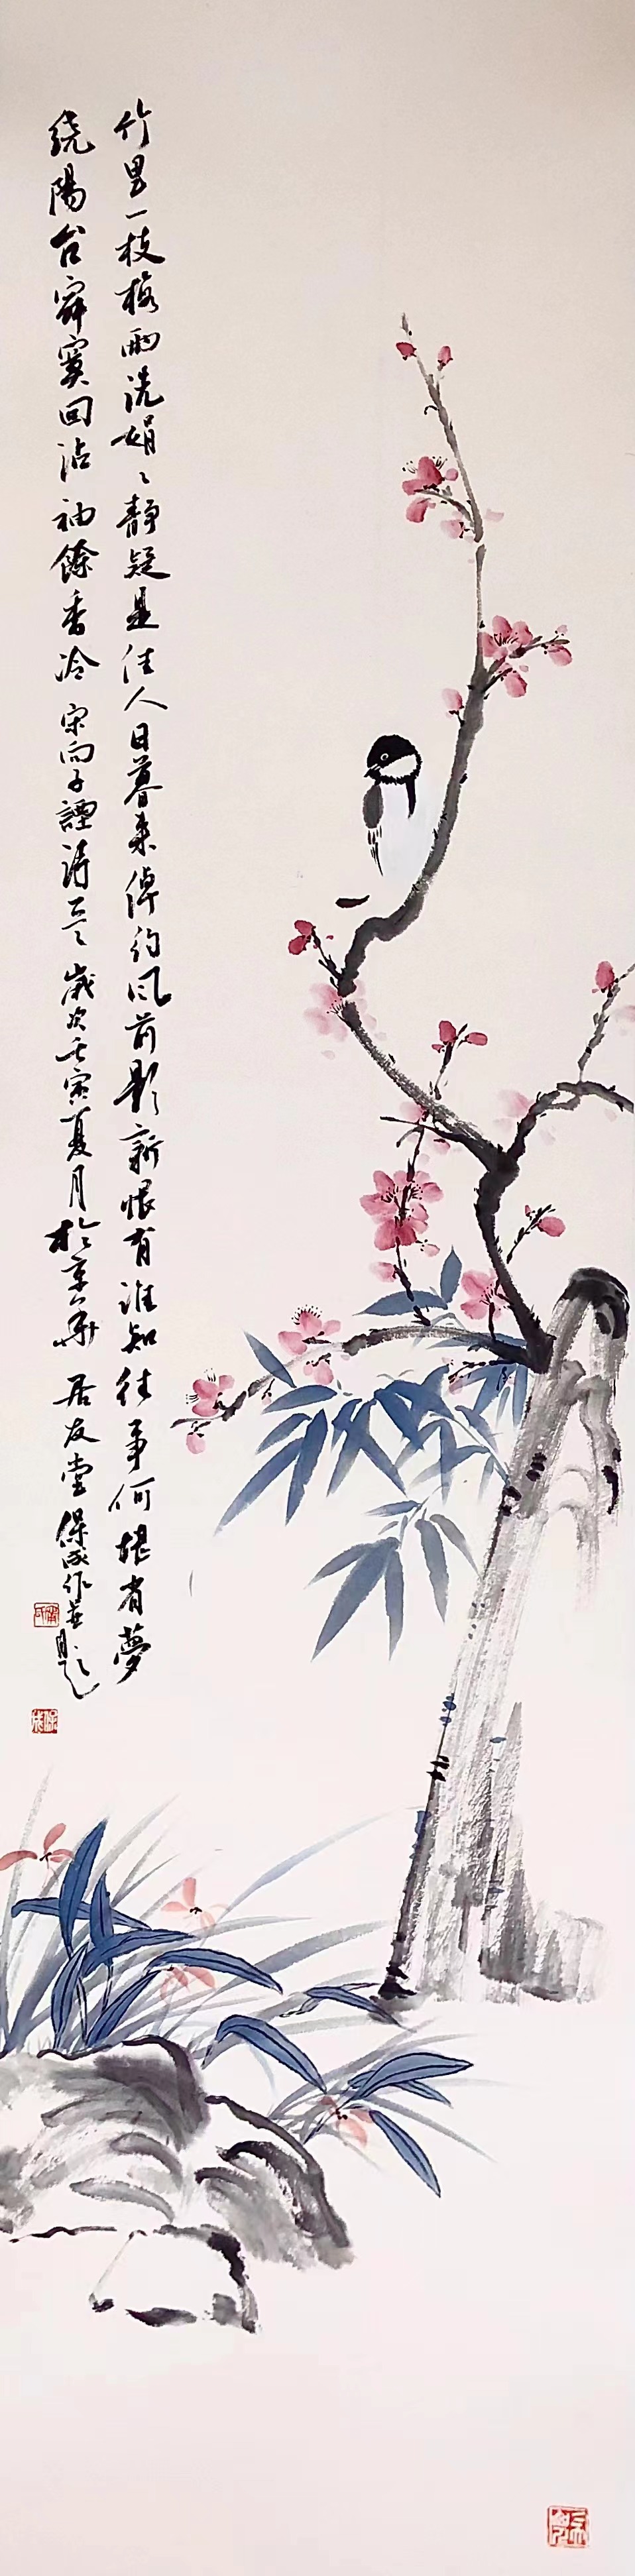 竹里一枝梅雨洗娟〻静疑是佳人日暮来绰约风前影新恨有谁知往事何堪省梦
绕陽台寂寞回沾袖馀香冷 宋向子諲诗意 歲次壬寅夏月於京华 居友堂保成作並题
保成